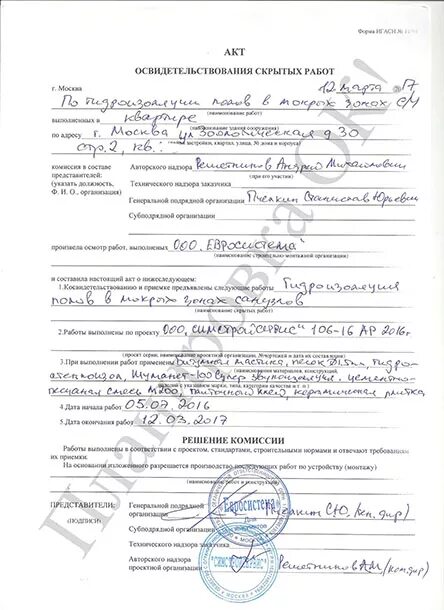 Форма НГАСН №
АКТ
ОСВИДЕТЕЛЬСТВОВАНИЯ СКРЫТЫХ РАБОТ
г. Москва 12 марта 2017
По гидроизоляции полов в мокрых зонах с/у
(наименование работ)
выполненных в квартире
(наименование здания сооружения)
по адресу г. Москва ул Зоологическая д 30
стр. 2, кв.:
комиссия в составе Авторского надзора Решетников Андрей Михайлович
представителей: (при его участии)
(указать должность, Технического надзора заказчика
Ф. И. о., организация) Генеральной подрядной организации Пчелкин Станислав Юрьевич
Субподрядной организации
произвела осмотр работ, выполненных ООО „ЕВРОсистема"
(наименование строительно монтажной организации)
и составила настоящий акт о нижеследующем:
1.Освидетельствованию и приемке предъявлены следующие работы Гидроизоляция
полов в мокрых зонах санузлов
(наименование скрытых работ)
2.Работы выполнены по проекту ООО „СИМСТРОЙСЕРВИС" 106-16 АР 2016г
(проект серии, наименование проектной организации, №чертежей и дата их составления)
3.При выполнении работ применены Битумная мастика, песок
Шуманет-100 Супер звукоизоляция. цементно-
М200, плиточный клей, керамическая плитка,
4.Дата начала работ 05.07.2016
5.Дата окончания работ 12.03.2017
РЕШЕНИЕ КОМИССИИ
Работы выполнены в соответствии с проектом, стандартами, строительными нормами и отвечают требованиям
их приемки.
На основании изложенного разрешается производство последующих работ по устройству (монтажу)
(наименование работ и конструкции)
ПРЕДСТАВИТЕЛИ: Генеральной подрядной
организации Пчелкин С.Ю. (ген. дир)
(ПОДПИСИ) Субподрядной организации
Технического надзора
Авторского надзора
проектной организации Решетников А.М (ген.дир)
"Евросистема"
"СИМСТРОЙСЕРВИС"
Планировка ОК!